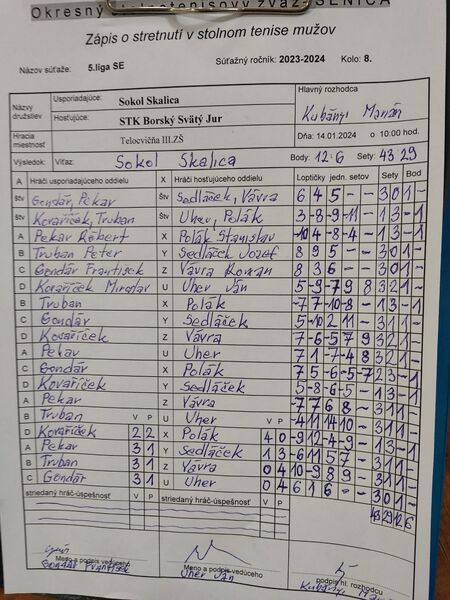 Okresný stolnotenisový zväz SENICA
Zápis o stretnutí v stolnom tenise mužov
Názov súťaže: 5.liga SE Súťažný ročník: 2023-2024 Kolo: 8.
Názvy družstiev Usporiadajúce: Sokol Skalica Hlavný rozhodca
Hosťujúce: STK Borský Svätý Jur Kubányi Marián
Hracia miestnosť Telocvičňa III.ZŠ Dňa: 14.01.2024 o 10:00 hod.
Výsledok: Víťaz: Sokol Skalica Body: 12:6 Sety: 43 29
A Hráči usporiadajúceho oddielu X Hráči hosťujúceho oddielu Loptičky jedn. setov Sety Bod
štv Gondár, Pekar štv Sedláček, Vávra 6 4 5 - - 3 0 1 -
štv Kovaříček, Truban štv Uher, Polák -3 -8 -9 -11 - 1 3 - 1
A Pekar Róbert X Polák Stanislav -10 4 -8 -4 - 1 3 - 1
B Truban Peter Y Sedláček Jozef 8 9 5 - - 3 0 1 -
C Gondár František Z Vávra Roman 8 3 6 - - 3 0 1 -
D Kovaříček Miroslav U Uher Ján 5 -9 -7 9 8 3 2 1 -
B Truban X Polák -7 7 -10 -8 - 1 3 - 1
C Gondár Y Sedláček 5 -10 2 11 - 3 1 1 -
D Kovaříček Z Vávra 7 -6 -5 7 9 3 2 1 -
A Pekar U Uher 7 1 -7 -4 8 3 2 1 -
C Gondár X Polák 7 5 -6 -5 -7 2 3 - 1
D Kovaříček Y Sedláček 5 -8 -6 -5 - 1 3 - 1
A Pekar Z Vávra -7 7 6 8 - 3 1 1 -
B Truban V P U Uher V P -4 11 14 10 - 3 1 1 -
D Kovaříček 2 2 X Polák 4 0 -9 -12 4 -9 - 1 3 - 1
A Pekar 3 1 Y Sedláček 1 3 -6 11 5 7 - 3 1 1 -
B Truban 3 1 Z Vávra 0 4 10 -9 8 9 - 3 1 1 -
C Gondár 3 1 U Uher 0 4 6 1 6 - - 3 0 1 -
striedaný hráč-úspešnosť V P striedaný hráč-úspešnosť V P 43 29 12 6
Meno a podpis vedúceho Meno a podpis vedúceho podpis hl. rozhodcu
Gondár František Uher Ján Kubányi